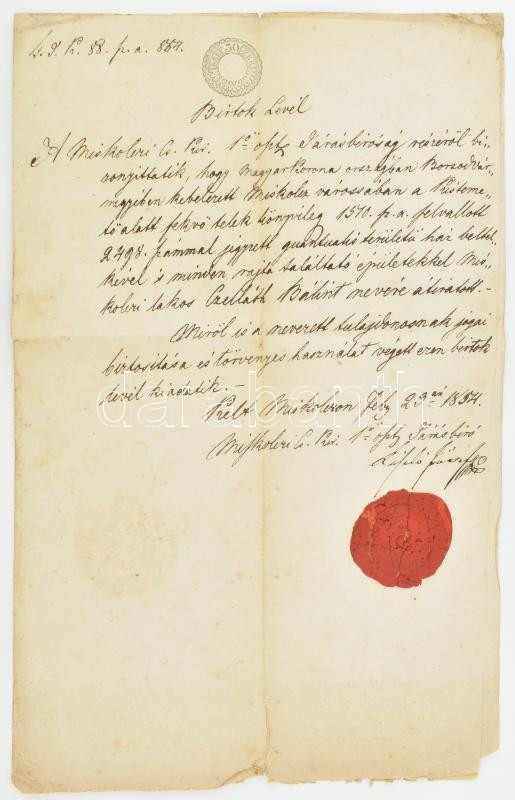 88. p. a. 854.
30
Birtok Levél
A Miskolczi Cs. Kir. 1ő oszt. Járásbíróság részéről bi„
zonyittatik, hogy magyarkorona országban Borsodvár„
megyében kebelezett Miskolcz városában a Kisteme„
tő alatt fekvő telek 1570. p. a. felvallott
2498. számmal jegyzett területü ház beltel„
kével is minden rajta található épületekkel Mis„
kolczi lakos Czelláth Bálint nevére átiratott.–
Miről is a nevezett tulajdonosnak jogai
biztosítása és törvényes használat végett ezen birtok
levél kiadatik.–
Kelt Miskolczon 23án 1854.
Miskolczi Cs. Kir. 1ő oszt. Járásbíró
László József
darabanth